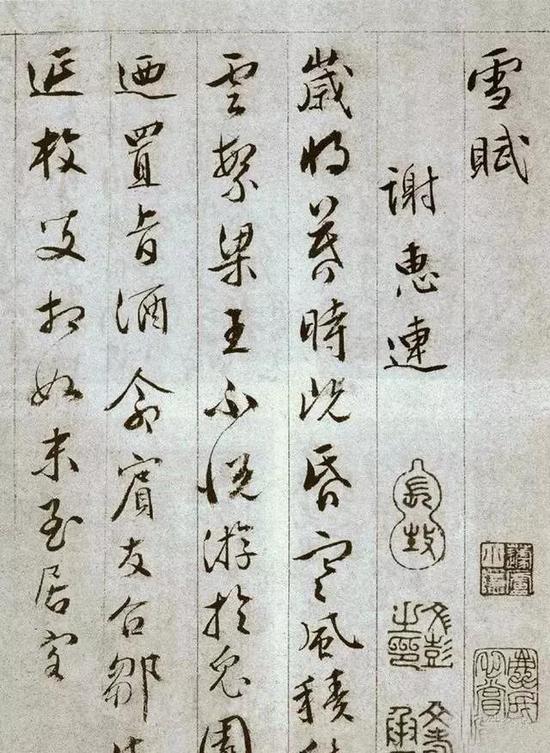 雪賦
謝惠連
歲將暮時既昏寒風積
雲繁梁王不悅游於兔園
迺置旨酒命賓友召鄒
延枚叟相如末至居客
文彭之印